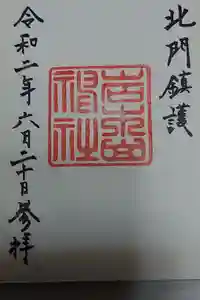 北門鎮護
神社
令和二年六月二十日参拝